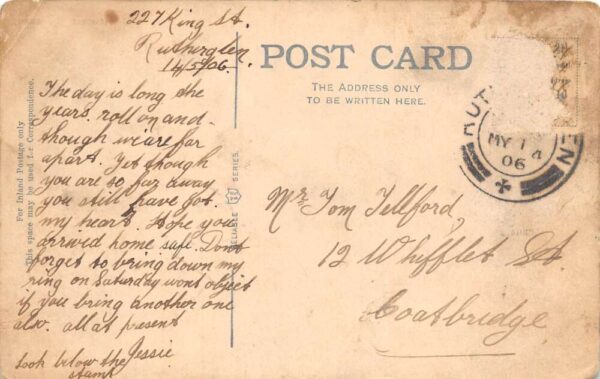 227 King St.
Rutherglen.
14/5/06.
The day is long the
years roll on and -
though we are far
apart. Yet though
you are so far away
you still have got
my heart. Hope you
arrived home safe Dont
forget to bring down my
ring on Saturday wont object
if you bring another one
also. all at present
Jessie
Look below the
stamp
For Inland Postage only
This space may be used for Correspondence.
RELIABLE SERIES.
POST CARD
THE ADDRESS ONLY
TO BE WRITTEN HERE.
MY 14
06
Mr Tom Tellford,
12 Whifflet St
Coatbridge